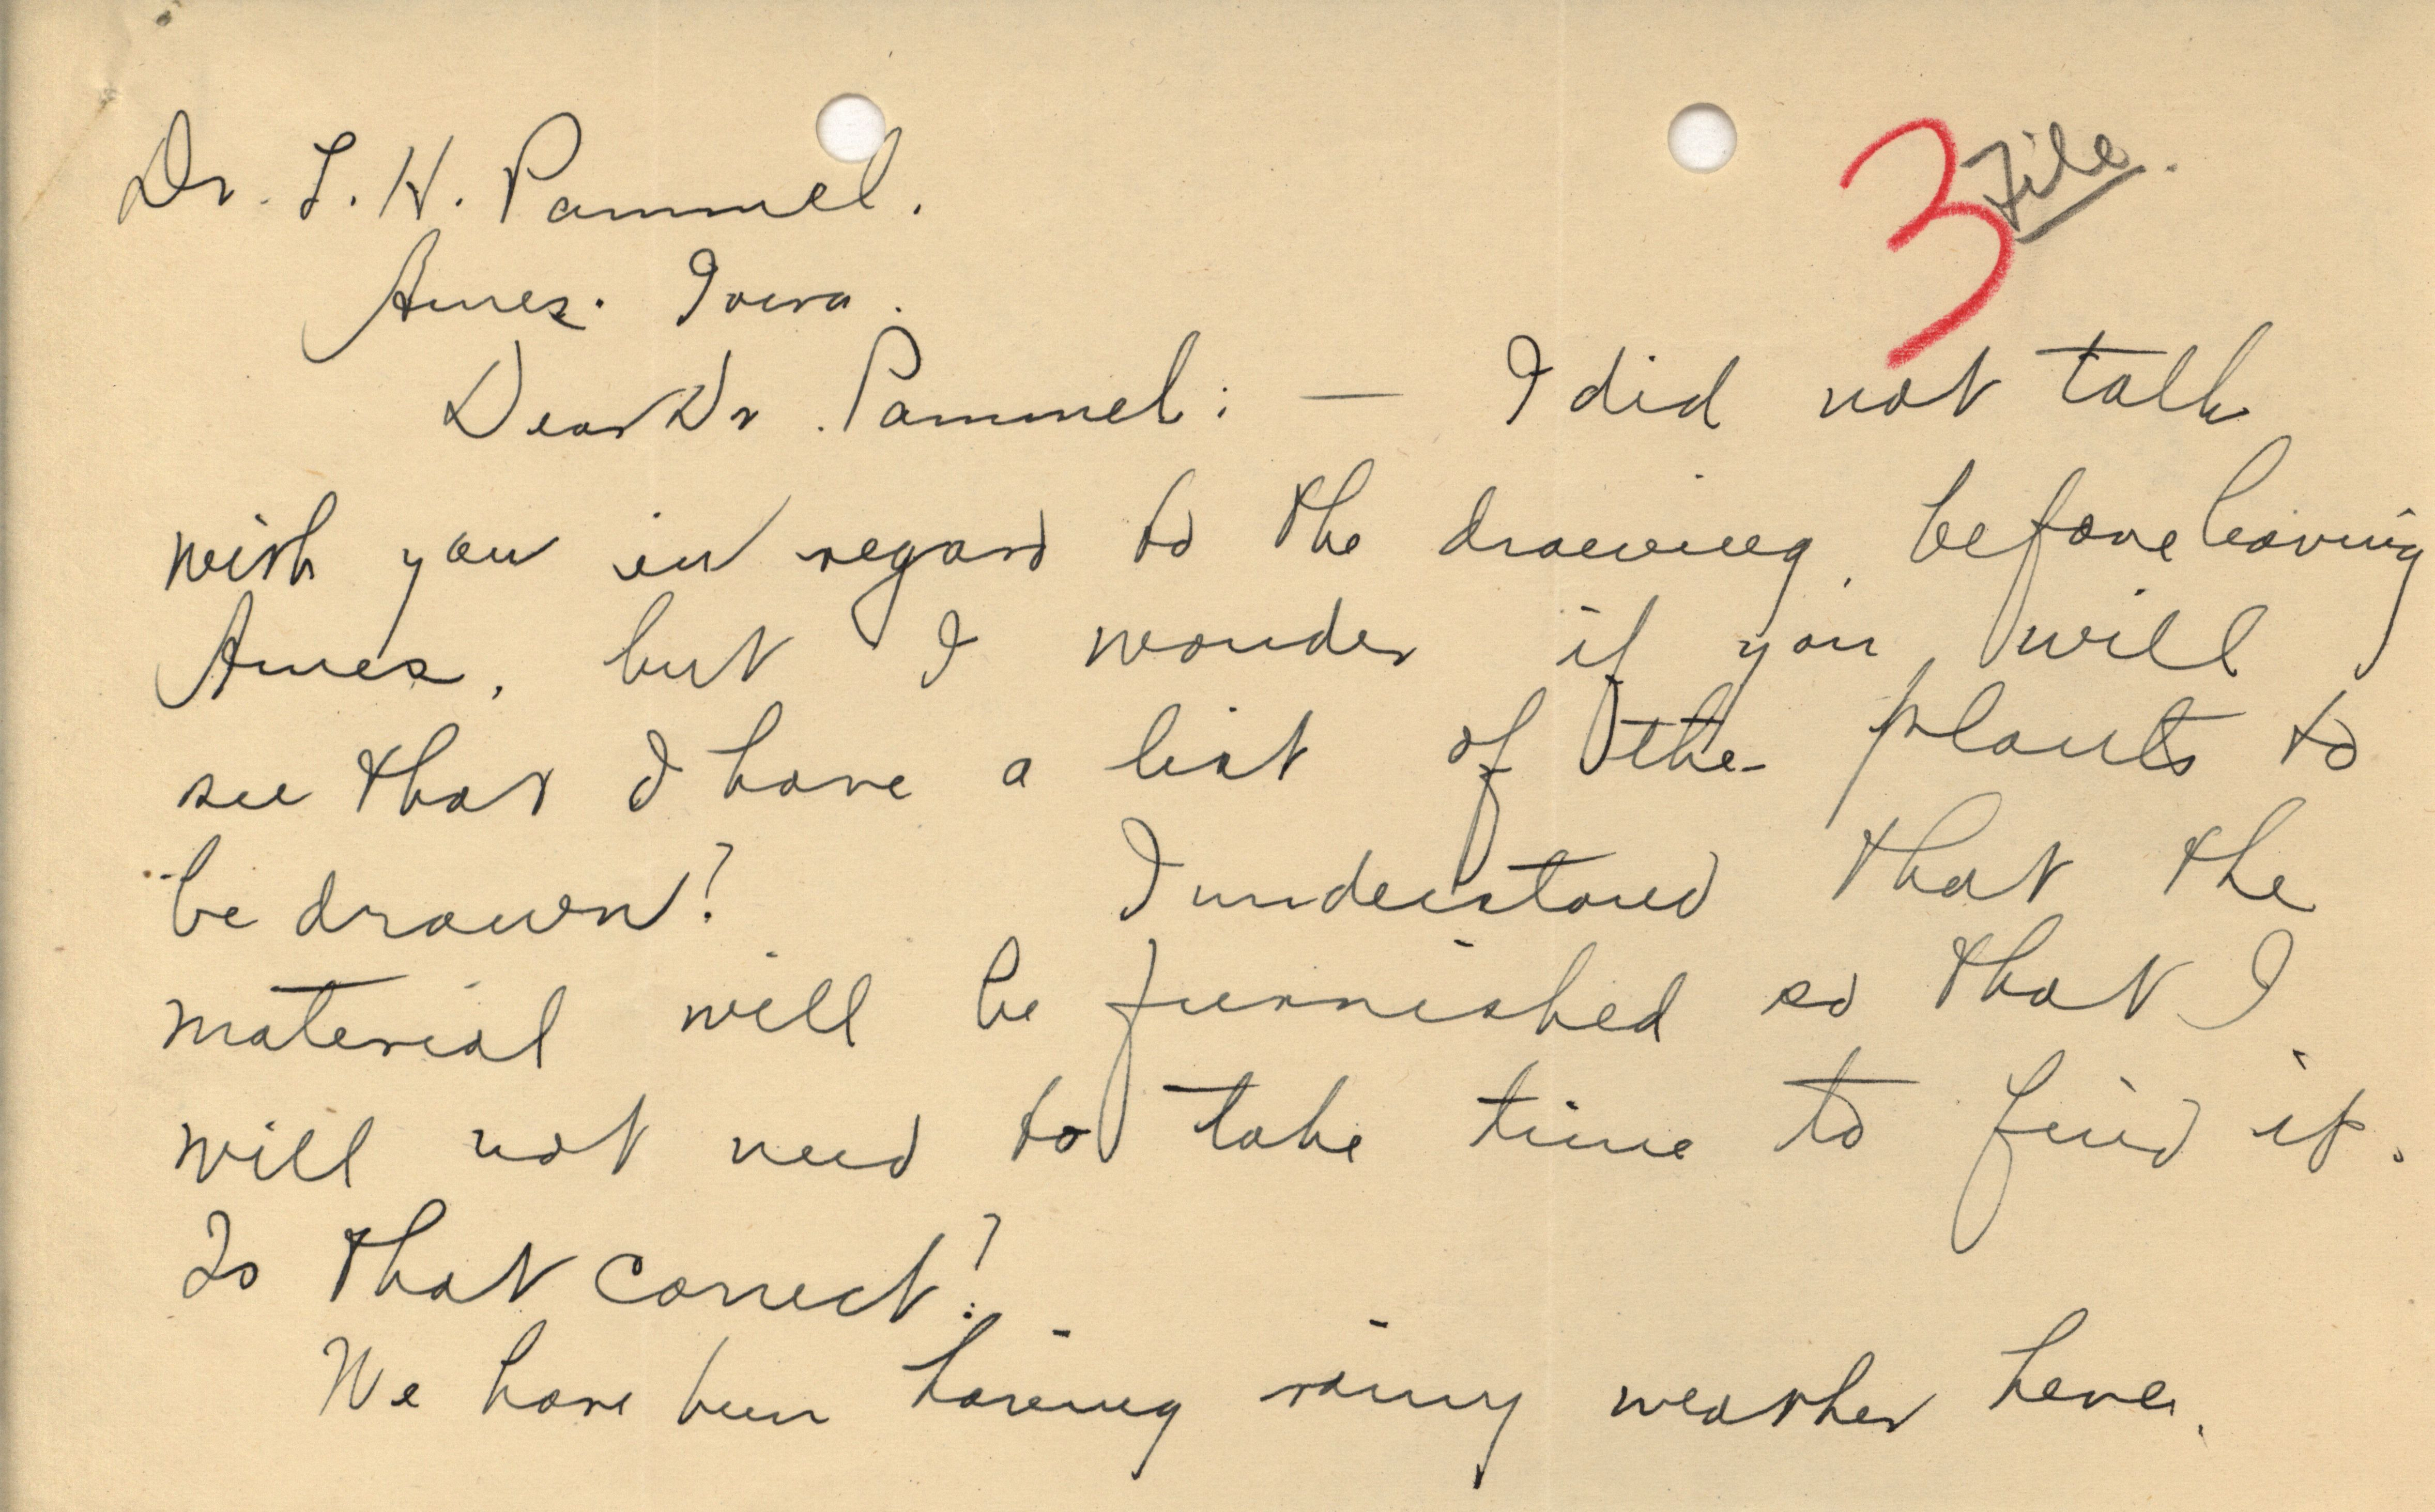 Dr. L. H. Pammel.
3 File.
Ames. Iowa.
Dear Dr. Pammel: — I did not talk
with you in regard to the drawing, before leaving
Ames, but I wonder if you will
see that I have a list of the plants to
be drawn? I understood that the
material will be furnished so that I
will not need to take time to find it.
Is that correct?
We have been having rainy weather here.